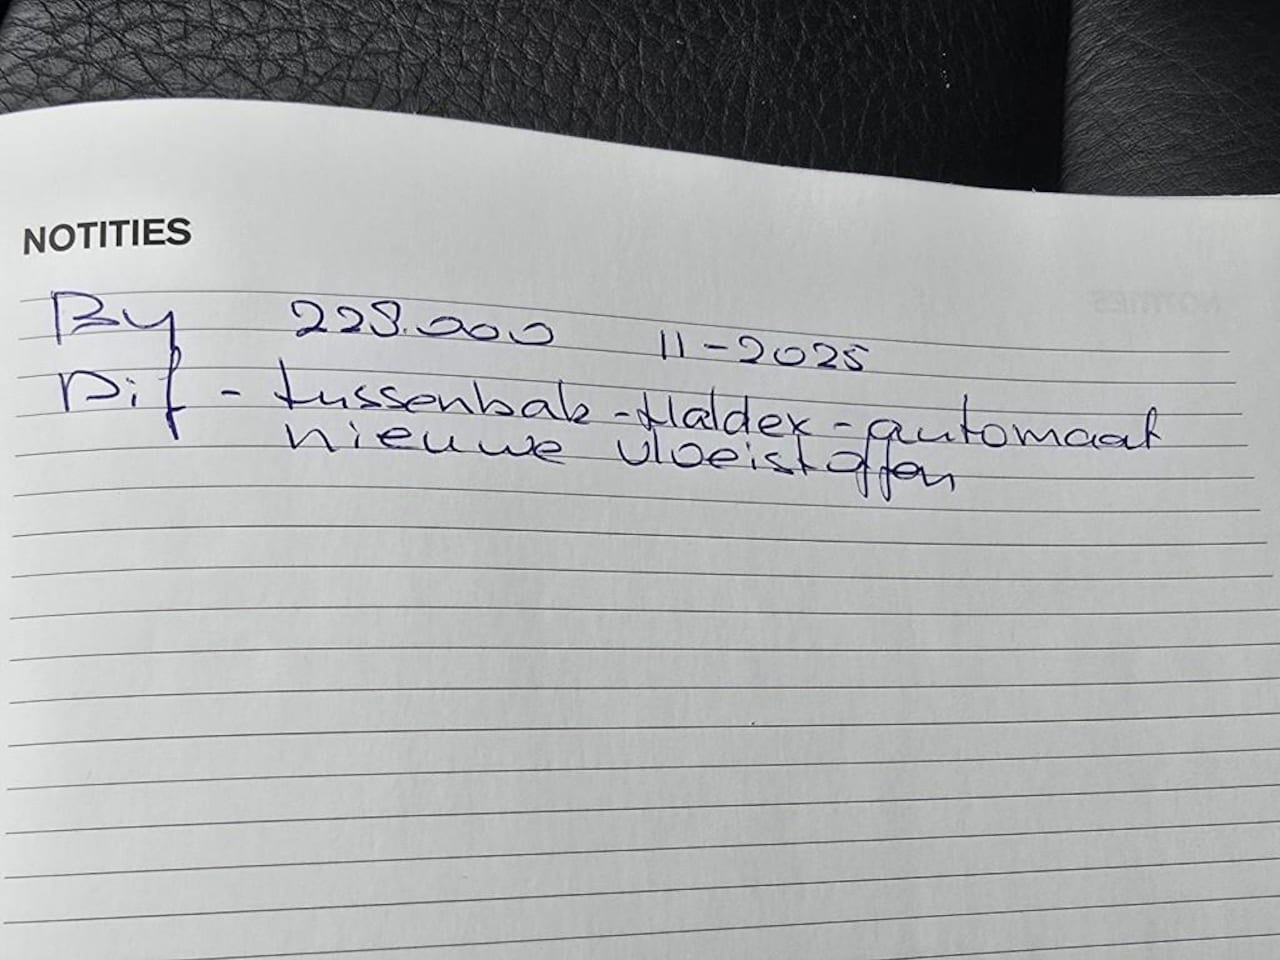 NOTITIES
By 228.000 11-2025
Dif - tussenbak - Haldex - automaat
nieuwe vloeistoffen